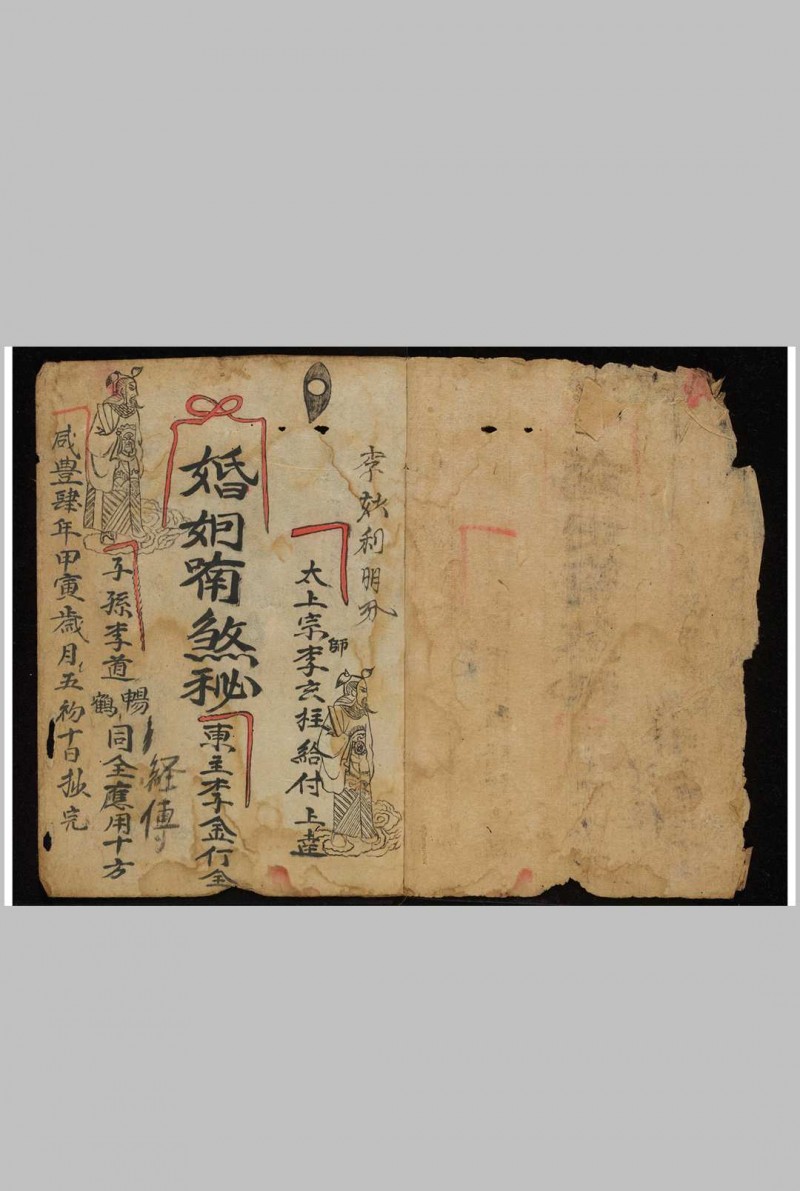 李 利明
太上宗師李玄 給付上達
婚姻 煞秘
東主李金行全
經傳
子孫李道暢鶴同全應用十方
咸豊肆年甲寅歲月五初十日抄完